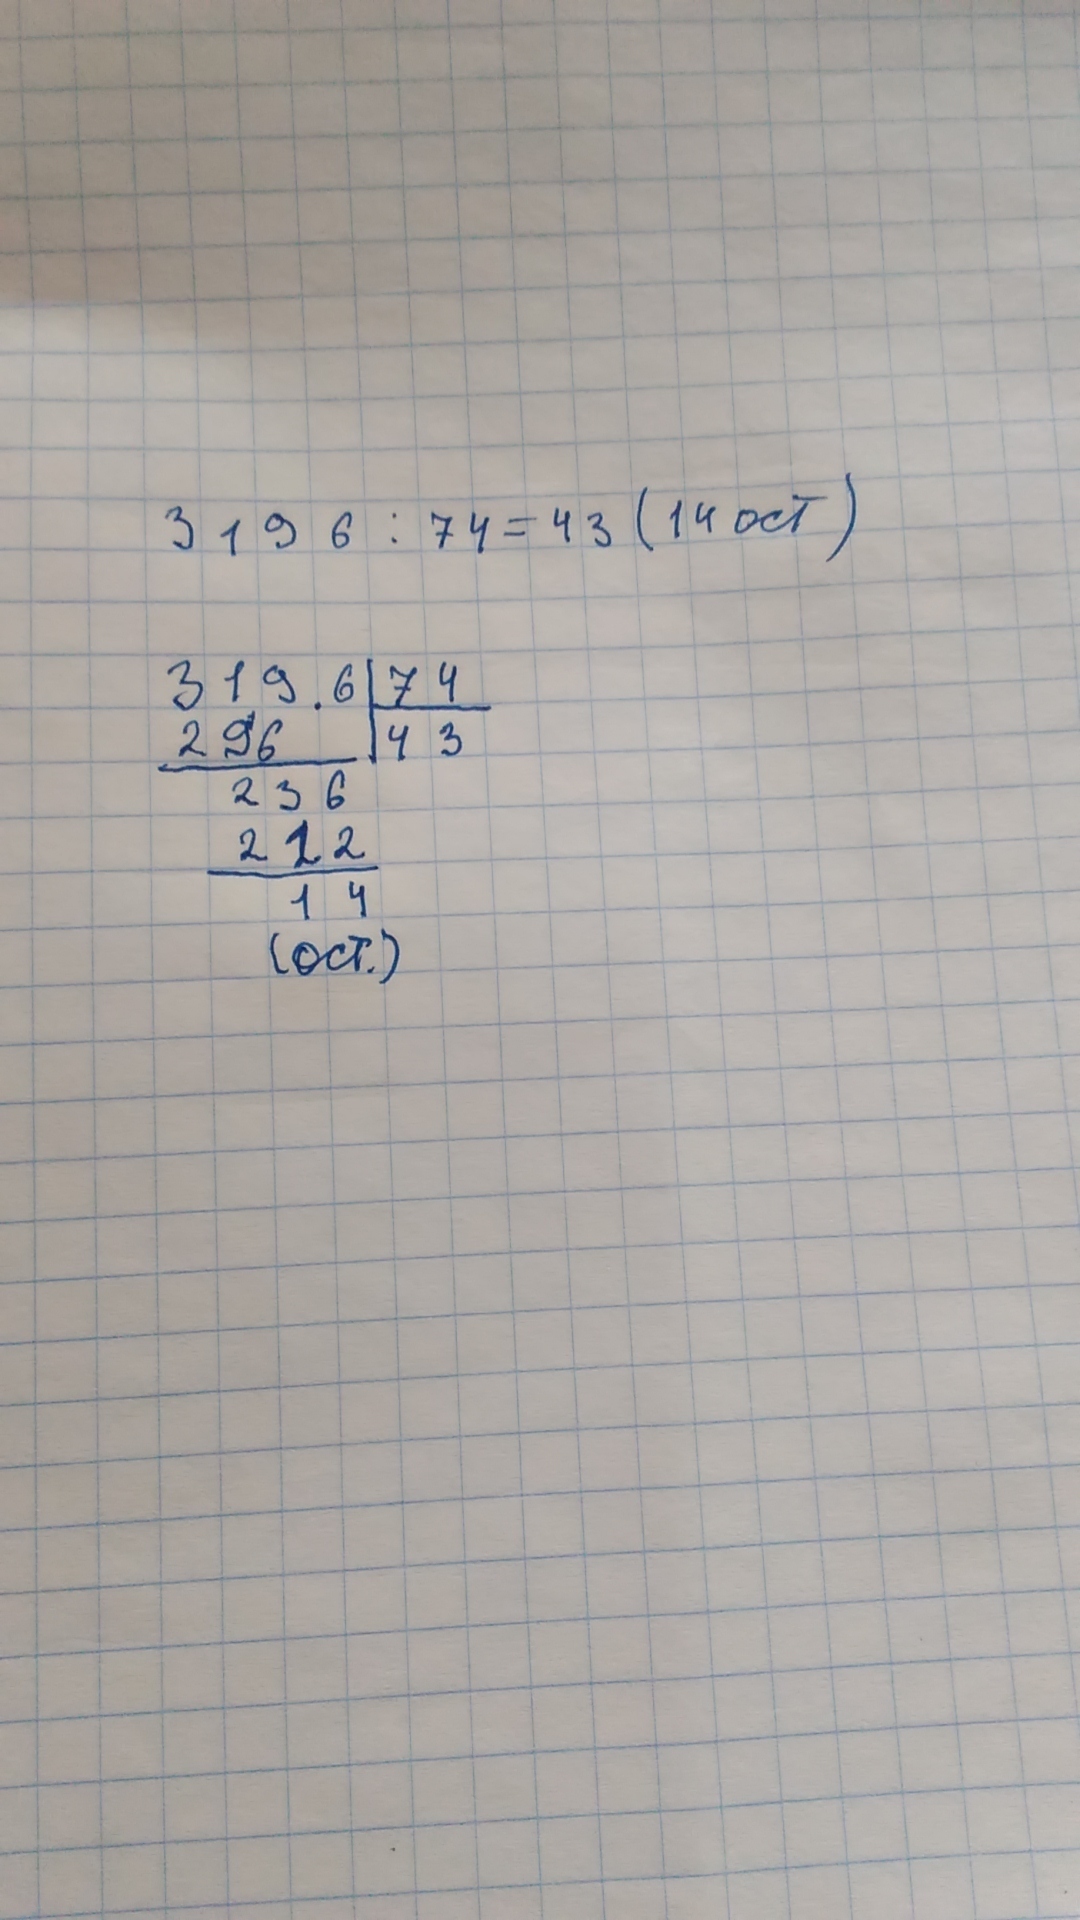 3196:74=43(14 ост)
319.6 74
296 43
236
212
14
(ост.)